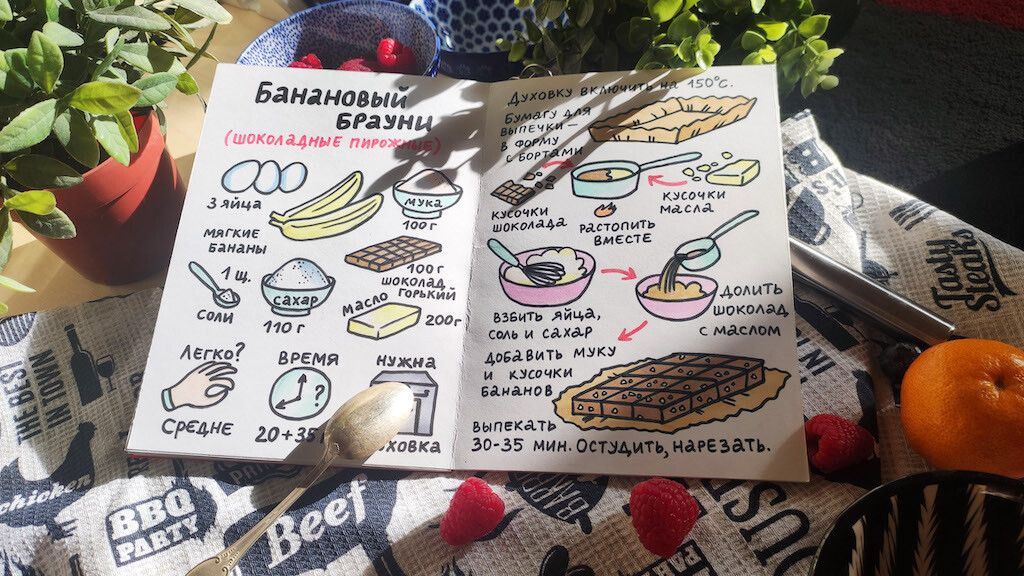 Банановый
Брауни
(шоколадные пирожные)
3 яйца
мука
100 г
мягкие
бананы
100 г
шоколад
горький
1 щ.
соли
сахар
110 г
масло
200 г
Легко?
Средне
Время
?
20+35
Нужна
Духовку включить на 150°С.
Бумагу для
выпечки –
в форму
с бортами
кусочки
шоколада
растопить
вместе
кусочки
масла
взбить яйца,
соль и сахар
долить
шоколад
с маслом
добавить муку
и кусочки
бананов
выпекать
30-35 мин. Остудить, нарезать.
Tasty
Steaks
THE BEST
IN TOWN
Chicken
BBQ
PARTY
Beef